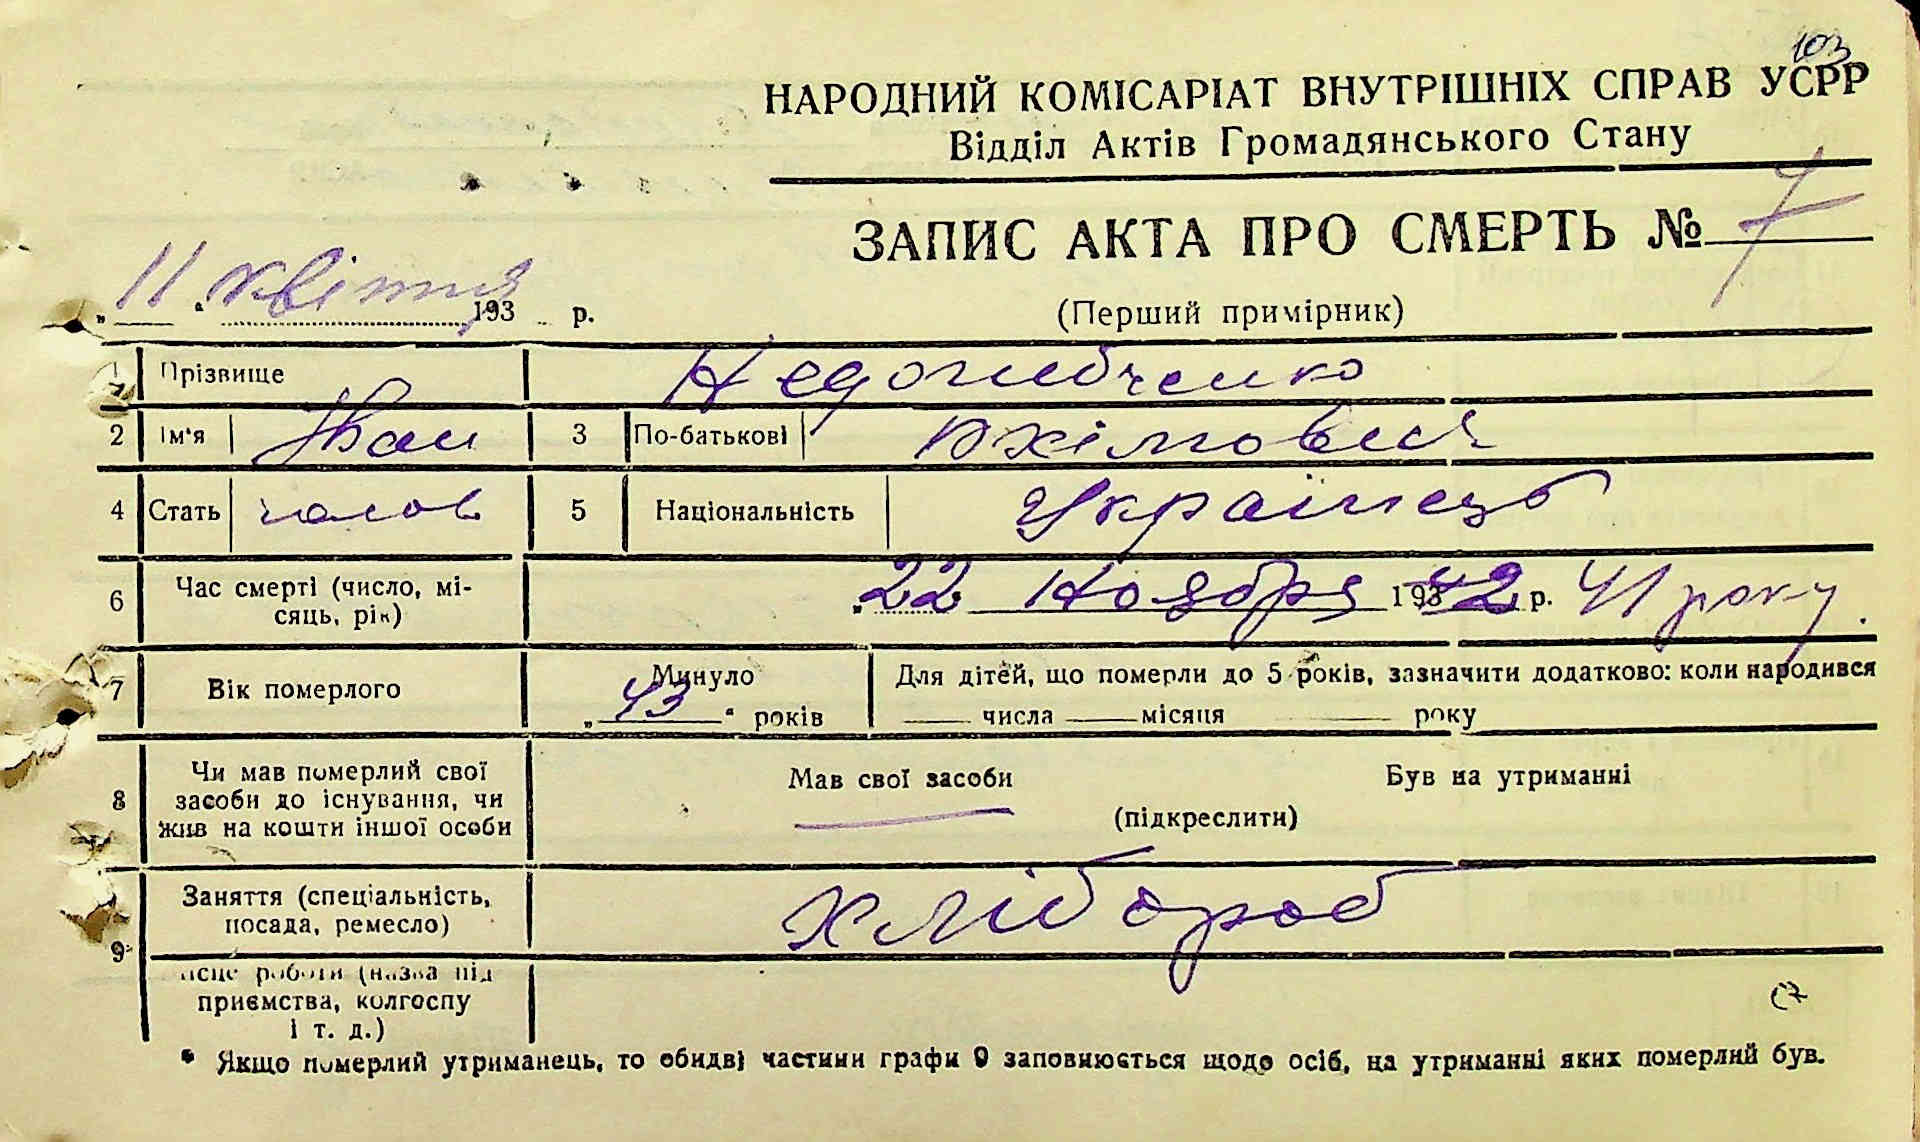 103
НАРОДНИЙ КОМІСАРІАТ ВНУТРІШНІХ СПРАВ УСРР
Відділ Актів Громадянського Стану
ЗАПИС АКТА ПРО СМЕРТЬ № 7
„ 11 “ квітня 193 р.
(Перший примірник)
1 Прізвище
2 Ім'я Іван 3 По-батькові Юхімович
4 Стать чолов 5 Національність Українець
6 Час смерті (число, місяць, рік) „ 22 Ноября 193 42 р. 41 року.
7 Вік померлого Минуло „ 43 “ років Для дітей, що померли до 5 років, зазначити додатково: коли народився
числа місяця року
8 Чи мав померлий свої
засоби до існування, чи
жив на кошти іншої особи
Мав свої засоби Був на утриманні
(підкреслити)
9 Заняття (спеціальність,
посада, ремесло)
хлібороб
місце роботи (назва під
приємства, колгоспу
і т. д.)
* Якщо померлий утриманець, то обидві частини графи 9 заповнюється щодо осіб, на утриманні яких померлий був.